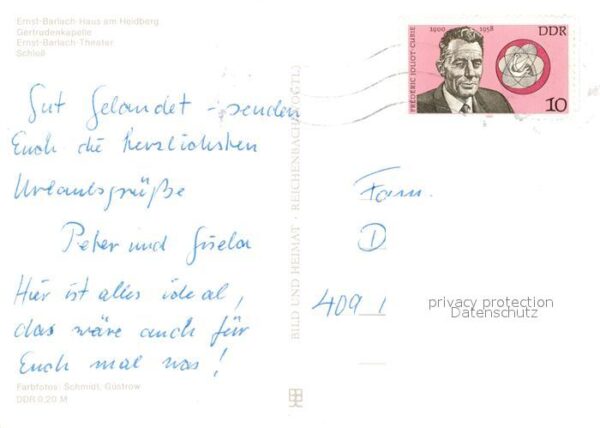 Ernst-Barlach-Haus am Heidberg
Gertrudenkapelle
Ernst-Barlach-Theater
Schloß
Gut Gelandet - senden
Euch die herzlichsten
Urlaubsgrüße
Peter und Gisela
Hier ist alles ideal,
das wäre auch für
Euch mal was!
Farbfotos: Schmidt, Güstrow
DDR 0,20 M
BILD UND HEIMAT · REICHENBACH (VOGTL)
1900 1958
DDR
FRÉDÉRIC JOLIOT-CURIE
10
Fam.
D
409 1
privacy protection
Datenschutz